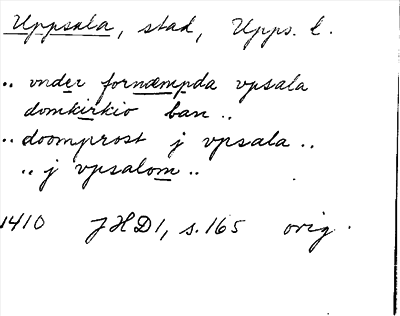 Uppsala, stad, Upps. l.
.. vnder fornæmpda vpsala
domkirkio ban ..
.. doomprost j vpsala ..
.. j vpsalom ..
1410 JHD1, s.165 orig.